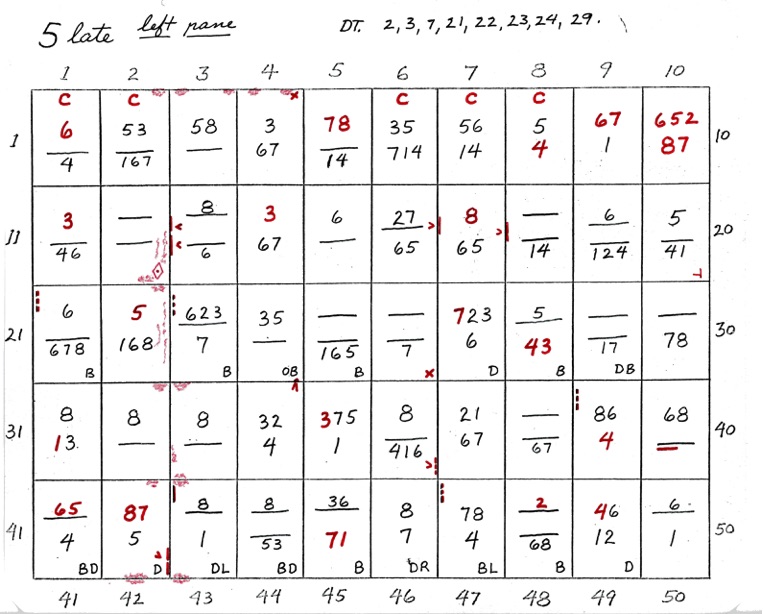 5 late left pane DT. 2, 3, 7, 21, 22, 23, 24, 29.
1 2 3 4 5 6 7 8 9 10
C C C C C
6 53 58 3 78 35 56 5 67 652
1 10
4 167 67 14 714 14 4 1 87
8 27 6
3 3 6 8 5
11 20
46 6 67 65 65 14 124 41
6 5 623 35 723 5
21 30
678 168 7 165 7 6 43 17 78
B B OB B D B DB
8 8 8 32 375 8 21 86 68
31 40
13 4 1 416 67 67 4
65 87 8 8 36 8 78 2 46 6
41 50
4 5 1 53 71 7 4 68 12 1
BD D DL BD B DR BL B D
41 42 43 44 45 46 47 48 49 50